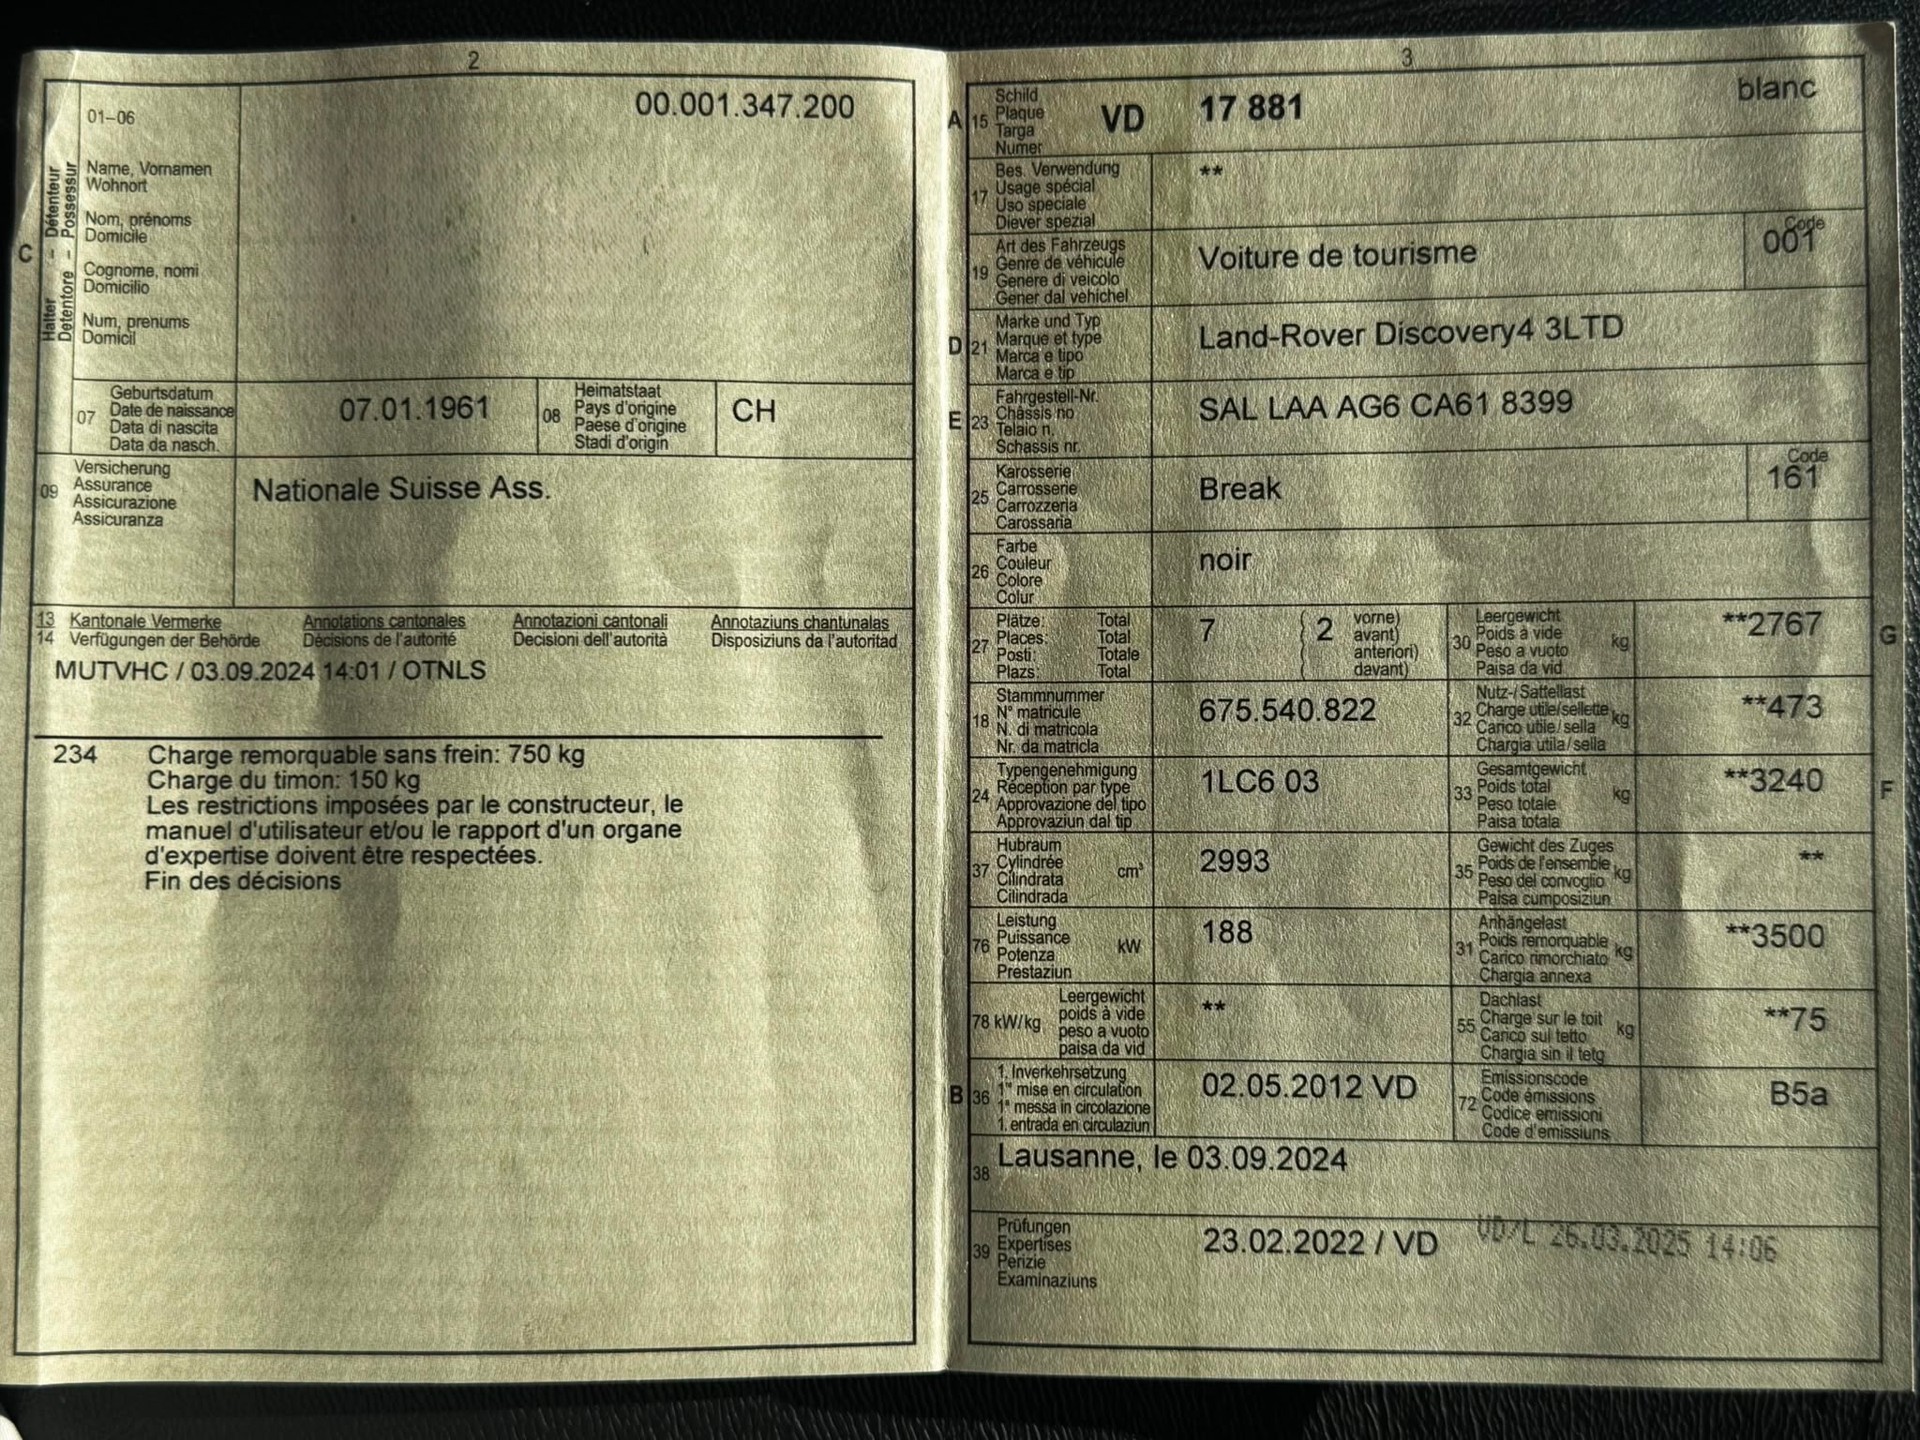 2
01–06
00.001.347.200
Halter – Détenteur
Detentore – Possessur
C
Name, Vornamen
Wohnort
Nom, prénoms
Domicile
Cognome, nomi
Domicilio
Num, prenums
Domicil
07
Geburtsdatum
Date de naissance
Data di nascita
Data da nasch.
07.01.1961
08
Heimatstaat
Pays d'origine
Paese d'origine
Stadi d'origin
CH
09
Versicherung
Assurance
Assicurazione
Assicuranza
Nationale Suisse Ass.
13 Kantonale Vermerke Annotations cantonales Annotazioni cantonali Annotaziuns chantunalas
14 Verfügungen der Behörde Décisions de l'autorité Decisioni dell'autorità Disposiziuns da l'autoritad
MUTVHC / 03.09.2024 14:01 / OTNLS
234 Charge remorquable sans frein: 750 kg
Charge du timon: 150 kg
Les restrictions imposées par le constructeur, le
manuel d'utilisateur et/ou le rapport d'un organe
d'expertise doivent être respectées.
Fin des décisions
3
A 15
Schild
Plaque
Targa
Numer
VD 17 881 blanc
17
Bes. Verwendung
Usage spécial
Uso speciale
Diever spezial
**
19
Art des Fahrzeugs
Genre de véhicule
Genere di veicolo
Gener dal vehichel
Voiture de tourisme
Code
001
D 21
Marke und Typ
Marque et type
Marca e tipo
Marca e tip
Land-Rover Discovery4 3LTD
E 23
Fahrgestell-Nr.
Châssis no
Telaio n.
Schassis nr.
SAL LAA AG6 CA61 8399
25
Karosserie
Carrosserie
Carrozzeria
Carossaria
Break
Code
161
26
Farbe
Couleur
Colore
Colur
noir
27
Plätze: Total
Places: Total
Posti: Totale
Plazs: Total
7
( 2 vorne)
avant)
anteriori)
( davant)
30
Leergewicht
Poids à vide kg
Peso a vuoto
Paisa da vid
**2767
G
18
Stammnummer
N° matricule
N. di matricola
Nr. da matricla
675.540.822
32
Nutz-/Sattellast
Charge utile/sellette kg
Carico utile/sella
Chargia utila/sella
**473
24
Typengenehmigung
Réception par type
Approvazione del tipo
Approvaziun dal tip
1LC6 03
33
Gesamtgewicht
Poids total kg
Peso totale
Paisa totala
**3240
F
37
Hubraum
Cylindrée cm³
Cilindrata
Cilindrada
2993
35
Gewicht des Zuges
Poids de l'ensemble kg
Peso del convoglio
Paisa cumposiziun
**
76
Leistung
Puissance kW
Potenza
Prestaziun
188
31
Anhängelast
Poids remorquable kg
Carico rimorchiato
Chargia annexa
**3500
78 kW/kg
Leergewicht
poids à vide
peso a vuoto
paisa da vid
**
55
Dachlast
Charge sur le toit kg
Carico sul tetto
Chargia sin il tetg
**75
B 36
1. Inverkehrsetzung
1re mise en circulation
1a messa in circolazione
1. entrada en circulaziun
02.05.2012 VD
72
Emissionscode
Code émissions
Codice emissioni
Code d'emissiuns
B5a
38
Lausanne, le 03.09.2024
39
Prüfungen
Expertises
Perizie
Examinaziuns
23.02.2022 / VD
VD/L 26.03.2025 14:06